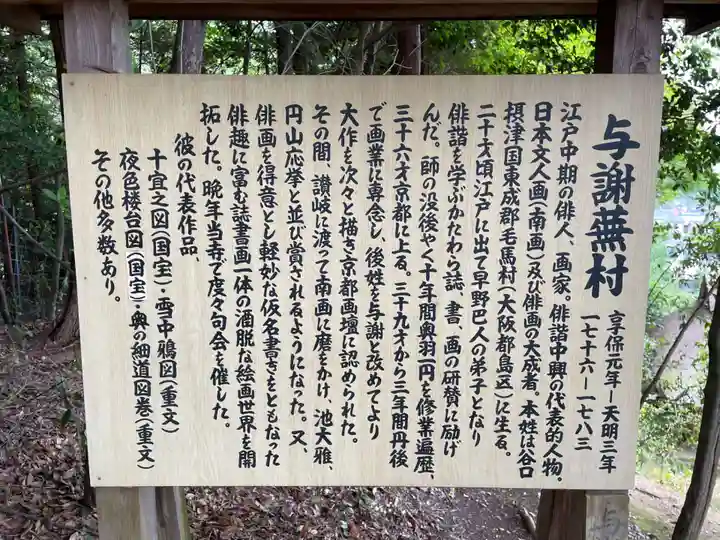 与謝蕪村
享保元年ー天明三年
一七十六ー一七八三
江戸中期の俳人、画家。俳諧中興の代表的人物。
日本文人画(南画)及び俳画の大成者。本姓は谷口
摂津国東成郡毛馬村(大阪都島区)に生る。
二十才頃江戸に出て早野巴人の弟子となり
俳諧を学ぶかたわら誌 書、画の研賛に励げ
んだ。師の没後やく十年間奥羽一円を修業遍歴、
三十六才京都に上る。三十九才から三年間丹後
で画業に専念し、後姓を与謝と改めてより
大作を次々と描き京都画壇に認められた。
その間、讃岐に渡って南画に磨をかけ、池大雅、
円山応挙と並び賞されるようになった。又、
俳画を得意とし軽妙な仮名書きをともなった
俳趣に富む誌書画一体の洒脱な絵画世界を開
拓した。晩年当寺で度々句会を催した。
彼の代表作品、
十宜之図(国宝)・雪中鴉図(重文)
夜色楼台図(国宝)・奥の細道図巻(重文)
その他多数あり。
与